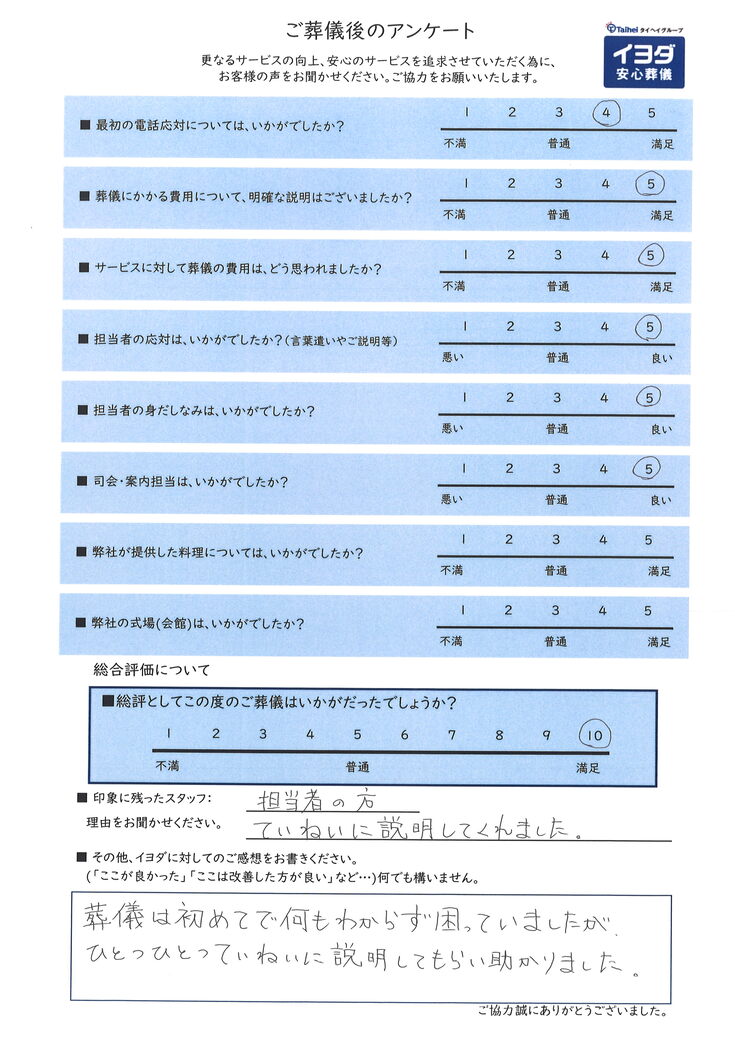 ご葬儀後のアンケート
Taihei タイヘイグループ
イヨダ
安心葬儀
更なるサービスの向上、安心のサービスを追求させていただく為に、
お客様の声をお聞かせください。ご協力をお願いいたします。
■ 最初の電話応対については、いかがでしたか?
1 2 3 4 5
不満 普通 満足
■ 葬儀にかかる費用について、明確な説明はございましたか?
1 2 3 4 5
不満 普通 満足
■ サービスに対して葬儀の費用は、どう思われましたか?
1 2 3 4 5
不満 普通 満足
■ 担当者の応対は、いかがでしたか?(言葉遣いやご説明等)
1 2 3 4 5
悪い 普通 良い
■ 担当者の身だしなみは、いかがでしたか?
1 2 3 4 5
悪い 普通 良い
■ 司会・案内担当は、いかがでしたか?
1 2 3 4 5
悪い 普通 良い
■ 弊社が提供した料理については、いかがでしたか?
1 2 3 4 5
不満 普通 満足
■ 弊社の式場(会館)は、いかがでしたか?
1 2 3 4 5
不満 普通 満足
総合評価について
■総評としてこの度のご葬儀はいかがだったでしょうか?
1 2 3 4 5 6 7 8 9 10
不満 普通 満足
■ 印象に残ったスタッフ: 担当者の方
理由をお聞かせください。 ていねいに説明してくれました。
■ その他、イヨダに対してのご感想をお書きください。
(「ここが良かった」「ここは改善した方が良い」など…)何でも構いません。
葬儀は初めてで何もわからず困っていましたが、
ひとつひとつていねいに説明してもらい助かりました。
ご協力誠にありがとうございました。